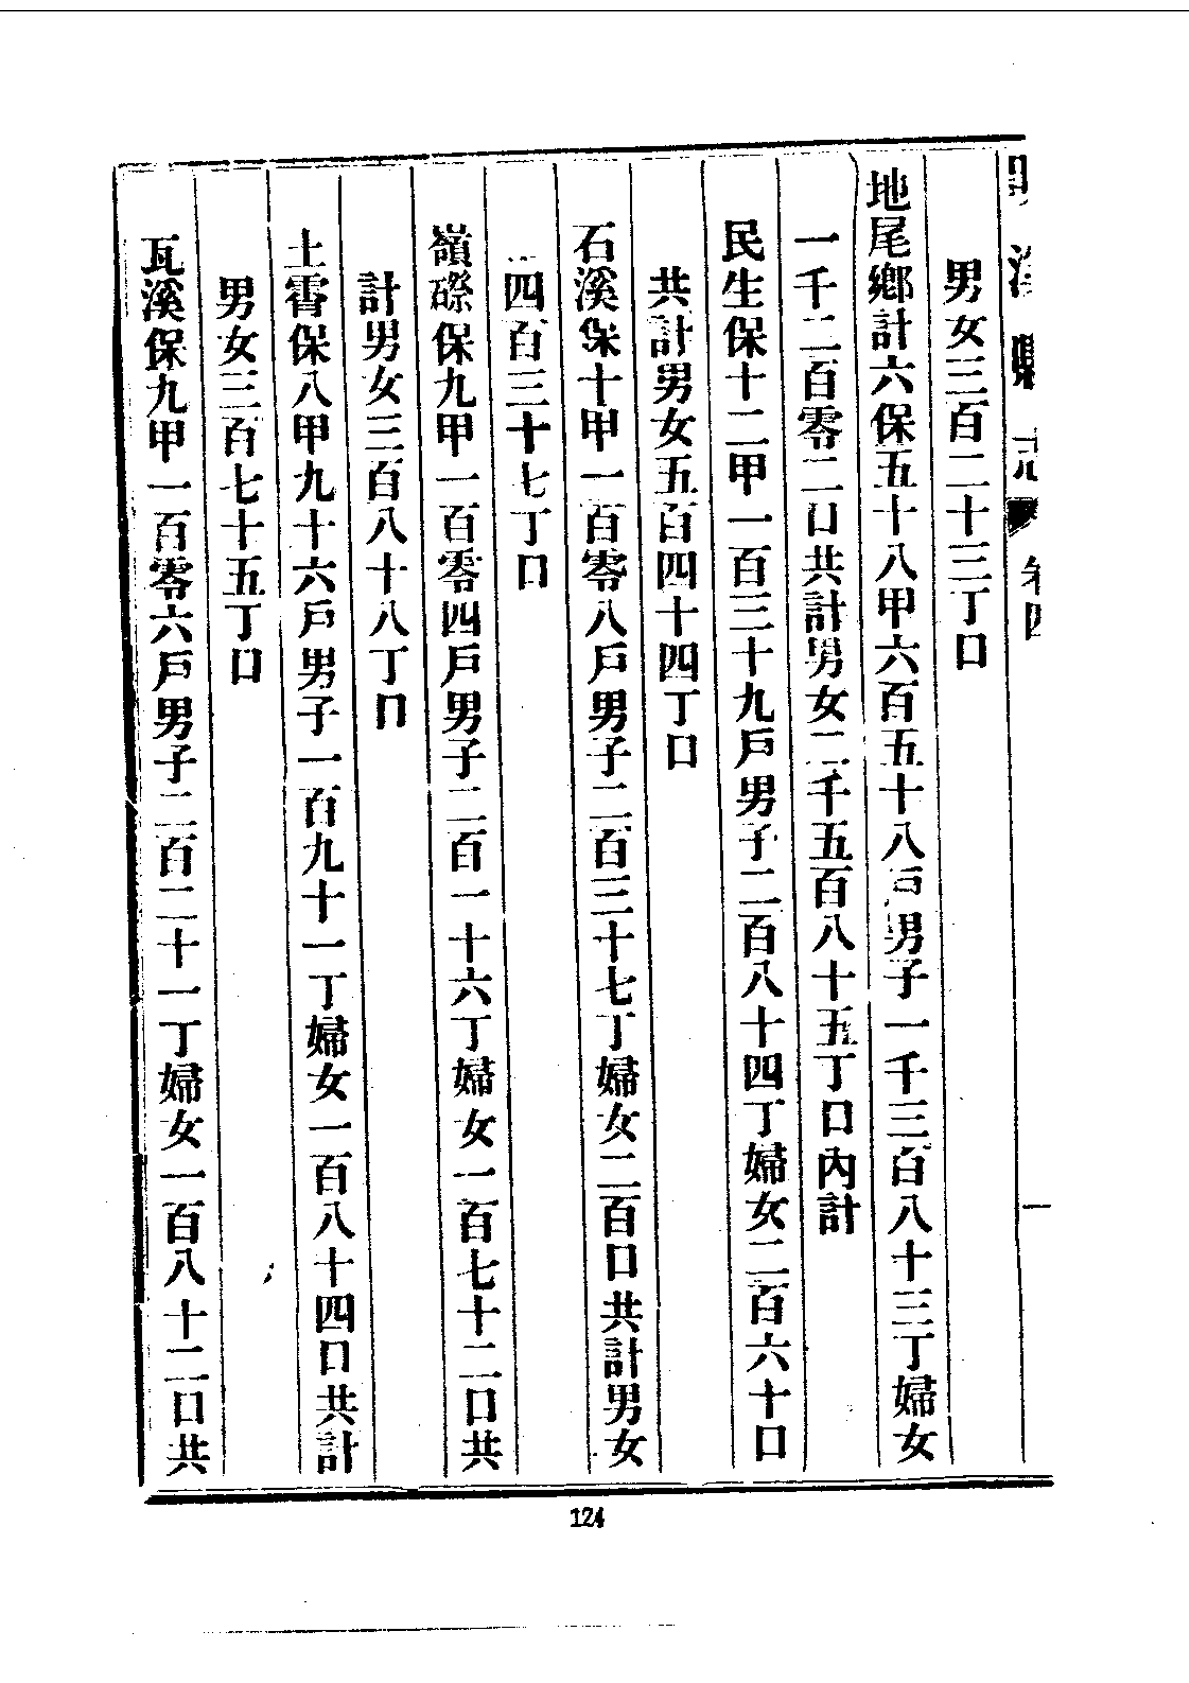 明溪縣志 卷四 一
男女三百二十三丁口
地尾鄉計六保五十八甲六百五十八戶男子一千三百八十三丁婦女
一千二百零二口共計男女二千五百八十五丁口內計
民生保十二甲一百三十九戶男子二百八十四丁婦女二百六十口
共計男女五百四十四丁口
石溪保十甲一百零八戶男子二百三十七丁婦女二百口共計男女
四百三十七丁口
嶺磜保九甲一百零四戶男子二百一十六丁婦女一百七十二口共
計男女三百八十八丁口
土霄保八甲九十六戶男子一百九十一丁婦女一百八十四口共計
男女三百七十五丁口
瓦溪保九甲一百零六戶男子二百二十一丁婦女一百八十二口共
124